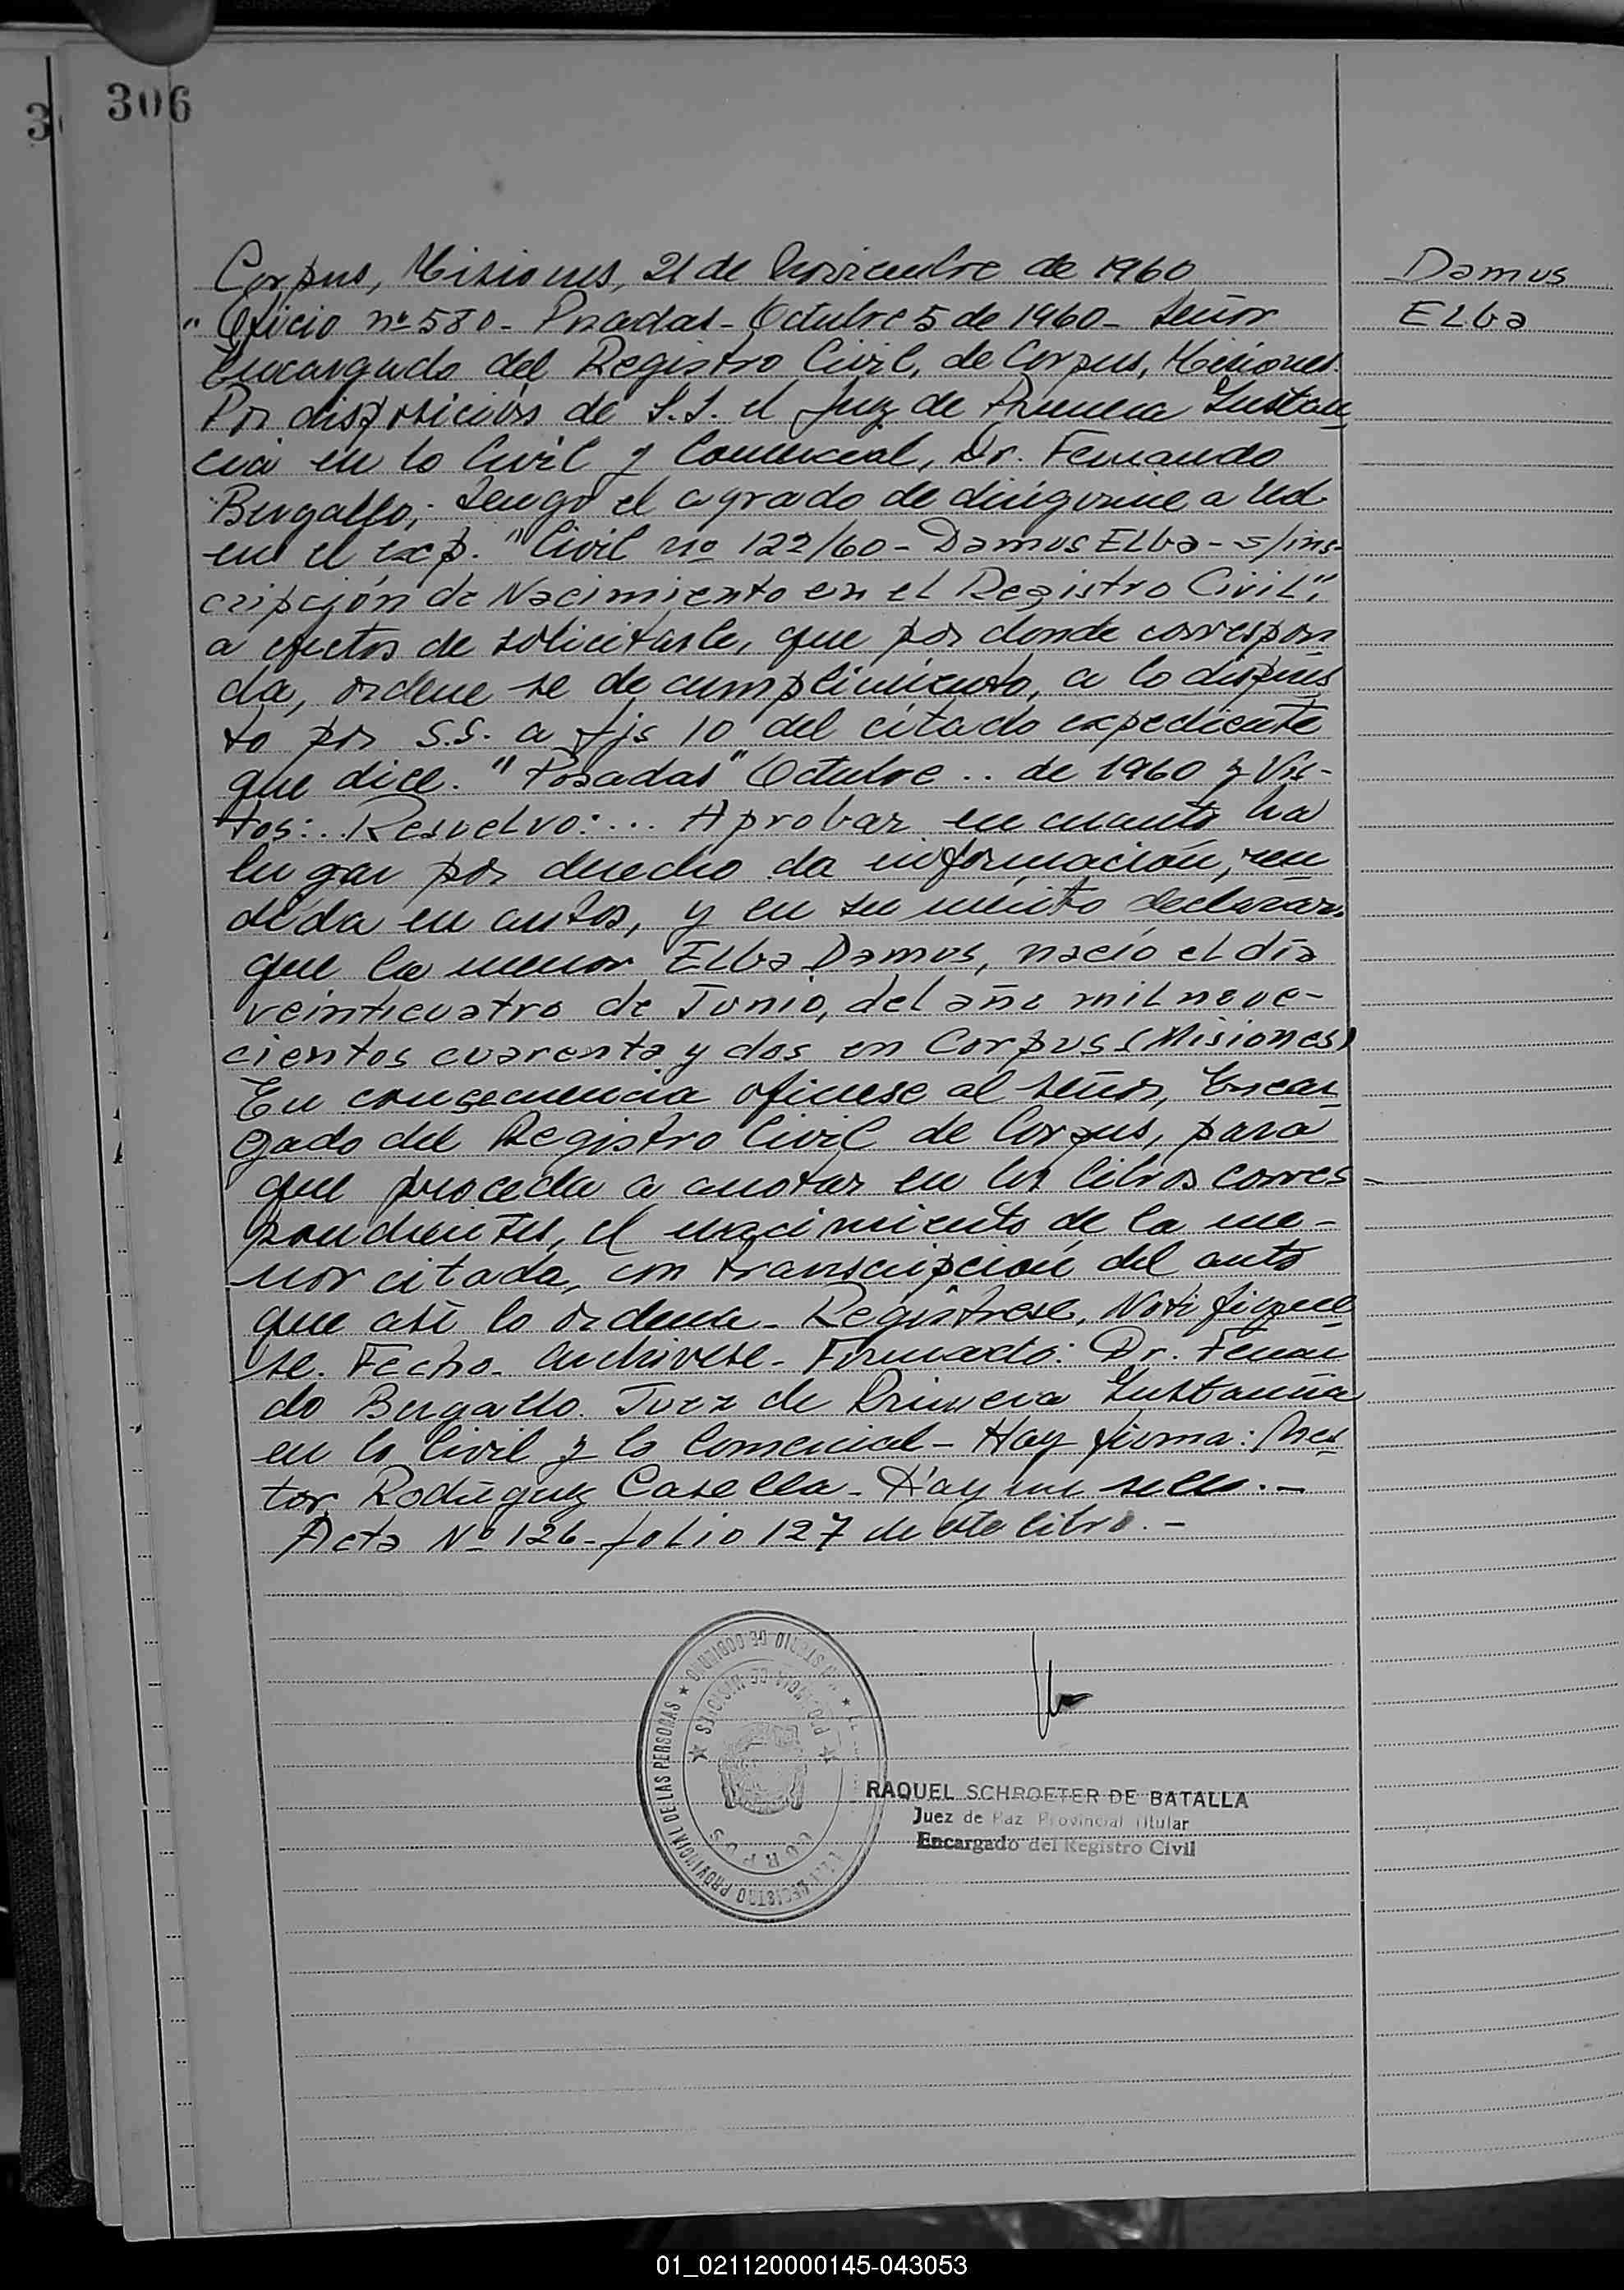 306
Corpus, Misiones, 21 de Noviembre de 1960
Damus
Elba
"Oficio nº 580 - Posadas - Octubre 5 de 1960 - Señor
Encargado del Registro Civil, de Corpus, Misiones.
Por disposición de S.S. el Juez de Primera Instan
cia en lo Civil y Comercial, Dr. Fernando
Bergallo, tengo el agrado de dirigirme a Ud
en el exp. "Civil no 122/60 - Damus Elba - s/ins-
cripción de Nacimiento en el Registro Civil",
a efectos de solicitarle, que por donde correspon
da, ordene se de cumplimiento, a lo dispues
to por S.S. a fjs 10 del citado expediente
que dice. "Posadas" Octubre .. de 1960 y Vis-
tos: .. Resuelvo: ... Aprobar en cuanto ha
lugar por derecho la información, ren
dida en autos, y en su mérito declarar
que la menor Elba Damus, nacio el día
veinticuatro de Junio, del año mil nove-
cientos cuarenta y dos en Corpus (Misiones)
En consecuencia ofíciese al señor, Encar
gado del Registro Civil de Corpus, para
que proceda a anotar en los libros corres
pondientes, el nacimiento de la me-
nor citada, con transcripción del auto
que así lo ordena - Regístrese, Notifíque
se. Fecho - archívese - Firmado: Dr. Fernan
do Bergallo. Juez de Primera Instancia
en lo Civil y lo Comercial - Hay firma: Nes
tor Rodríguez Casella - Hay un sello. -
Acta Nº 126 - folio 127 de este libro. -
REGISTRO PROVINCIAL DE LAS PERSONAS ★ MINISTERIO DE GOBIERNO ★
★ PROVINCIA DE MISIONES ★
CORPUS
RAQUEL SCHROETER DE BATALLA
Juez de Paz Provincial Titular
Encargado del Registro Civil
01_021120000145-043053